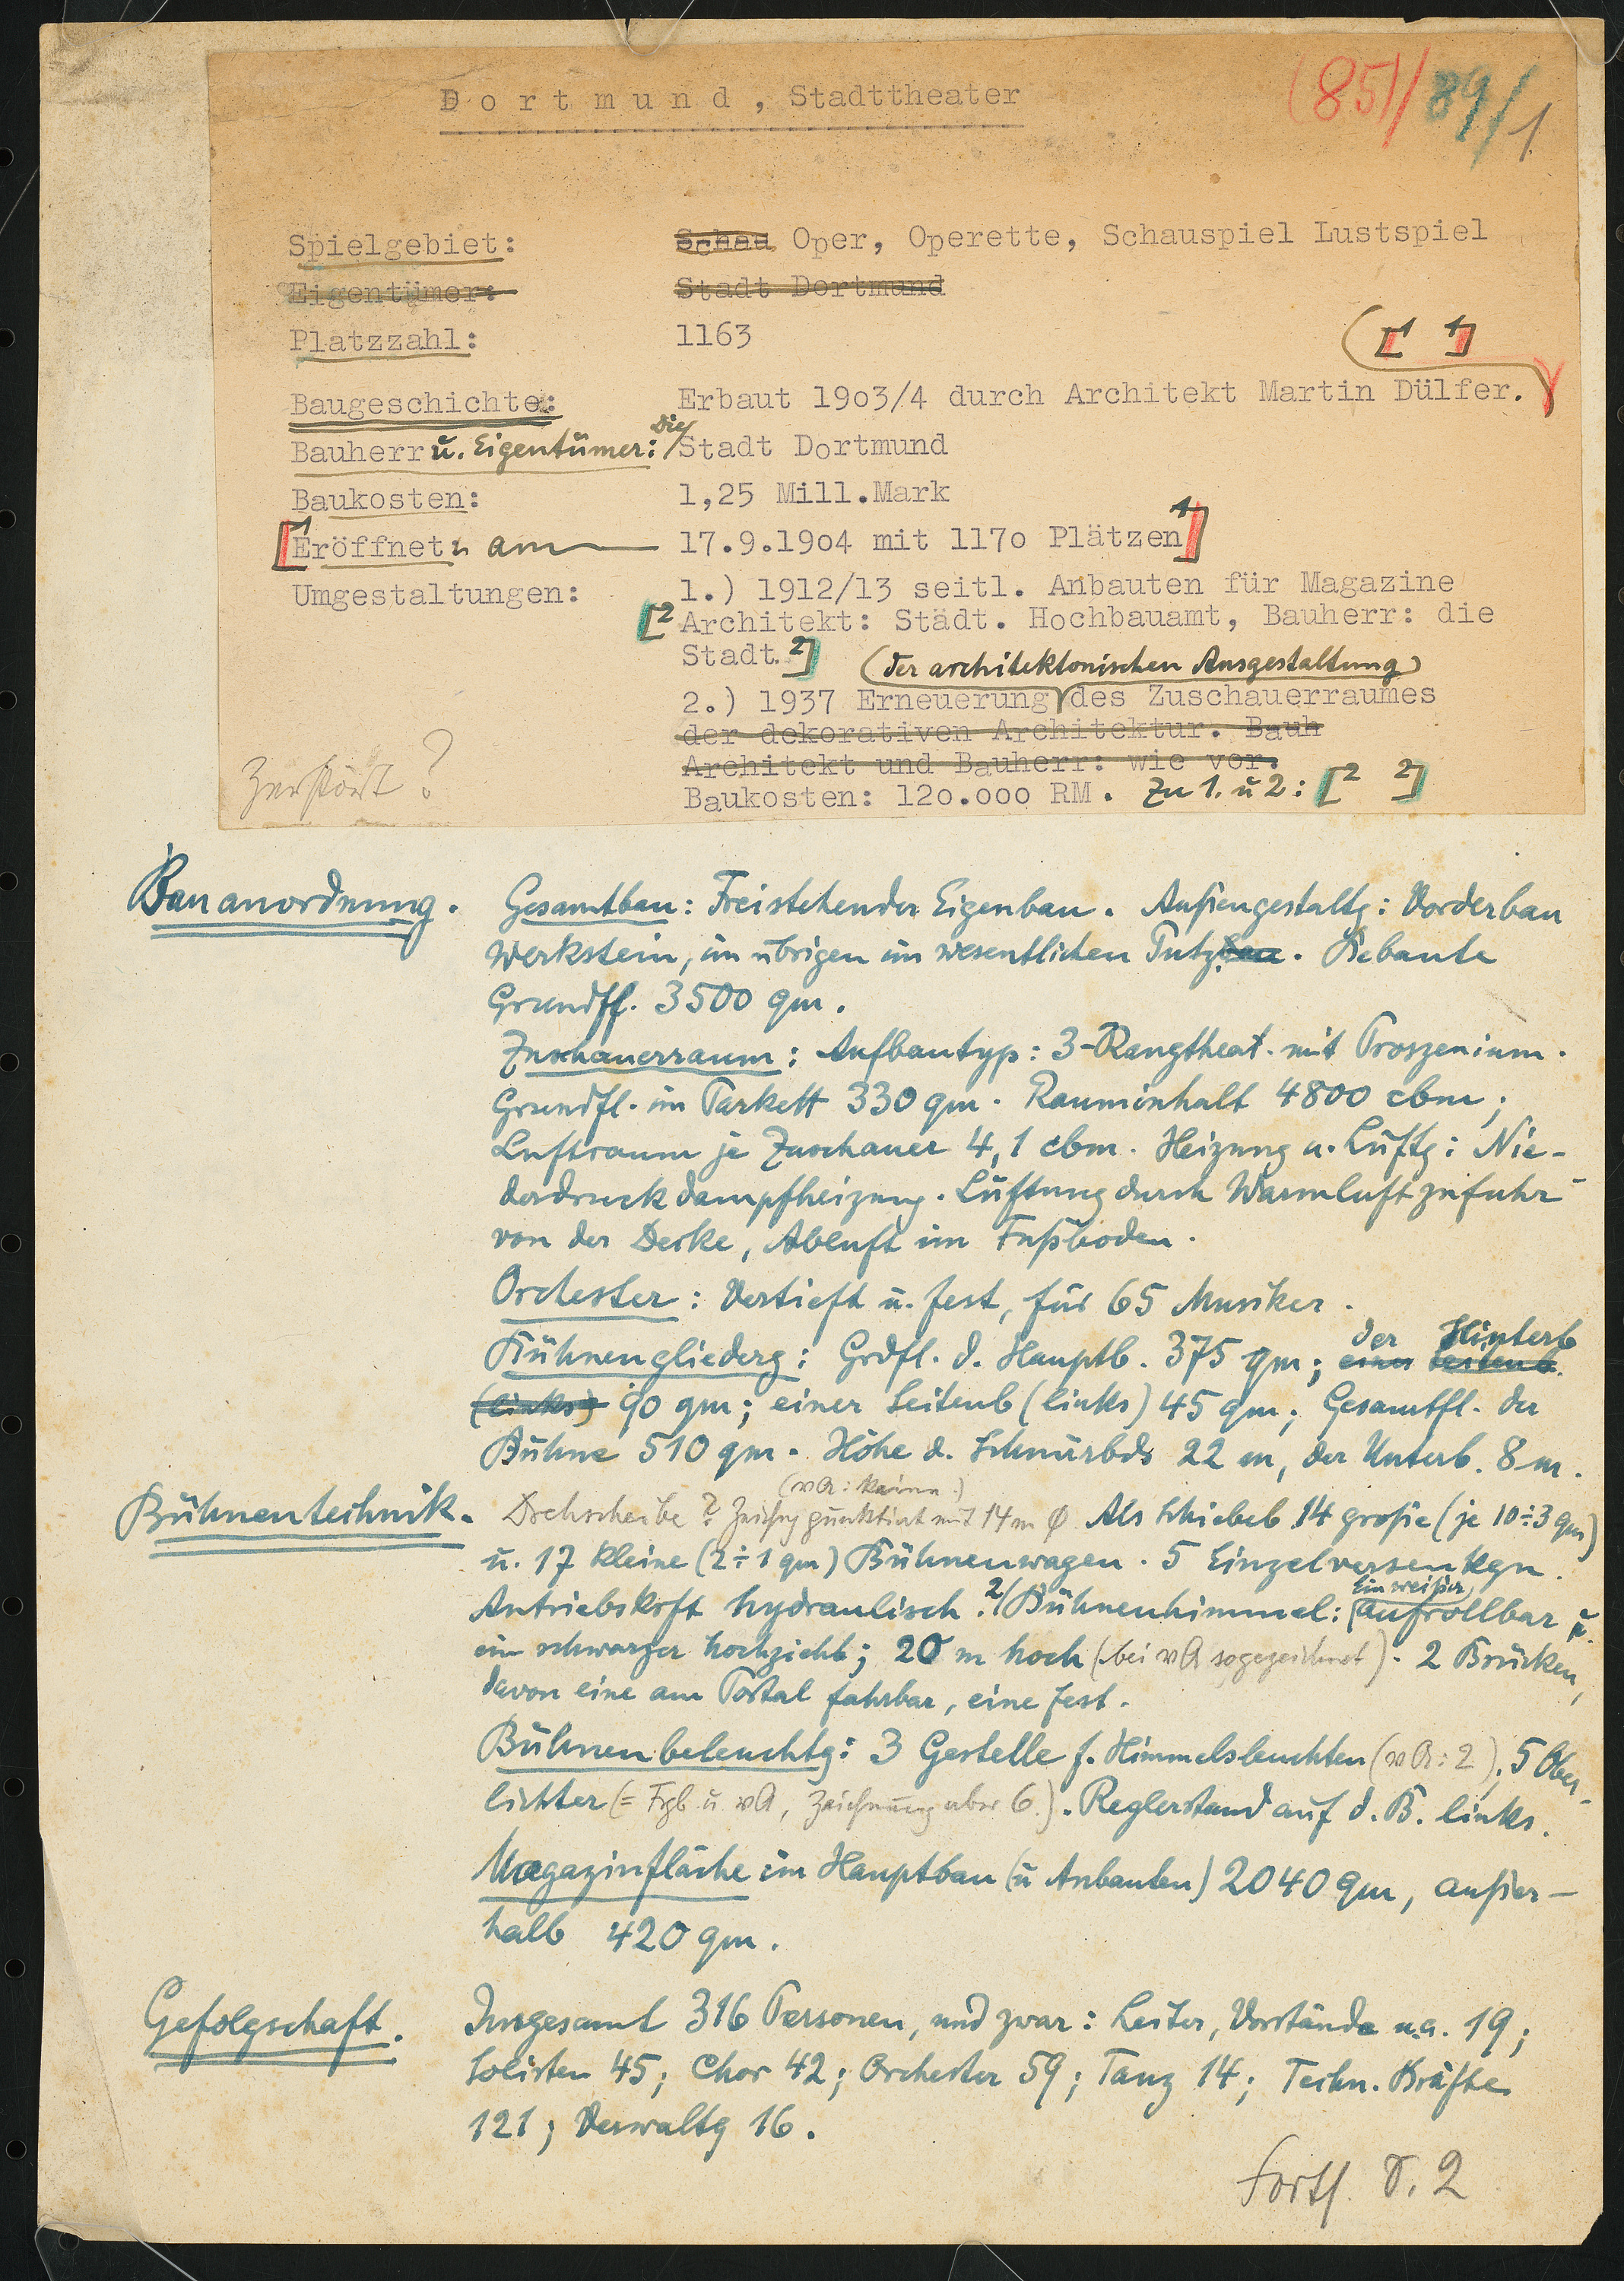 (85)/ 89/1
Dortmund, Stadttheater
Spielgebiet: Schau Oper, Operette, Schauspiel Lustspiel
Eigentümer: Stadt Dortmund
Platzzahl: 1163
[1 1]
Baugeschichte: Erbaut 19o3/4 durch Architekt Martin Dülfer.
Bauherr u. Eigentümer: Die Stadt Dortmund
Baukosten: 1,25 Mill.Mark
[1 Eröffnet: am 17.9.19o4 mit 117o Plätzen 1]
Umgestaltungen: 1.) 1912/13 seitl. Anbauten für Magazine
[2 Architekt: Städt. Hochbauamt, Bauherr: die
Stadt. 2] (der architektonischen Ausgestaltung)
2.) 1937 Erneuerung des Zuschauerraumes
der dekorativen Architektur. Bauh
Architekt und Bauherr: wie vor.
Zerstört?
Baukosten: 12o.ooo RM. Zu 1. u 2: [2 2]
Bauanordnung. Gesamtbau: Freistehender Eigenbau. Außengestaltg: Vorderbau
Werkstein, im übrigen im wesentlichen Putzbau. Bebaute
Grundfl. 3500 qm.
Zuschauerraum: Aufbautyp: 3-Rangtheat. mit Proszenium.
Grundfl. im Parkett 330 qm. Rauminhalt 4800 cbm;
Luftraum je Zuschauer 4,1 cbm. Heizung u. Lüftg: Nie-
derdruckdampfheizung. Lüftung durch Warmluftzufuhr
von der Decke, Abluft im Fußboden.
Orchester: Vertieft u. fest, für 65 Musiker.
Bühnengliederg: Grdfl. d. Hauptb. 375 qm; einer Seitenb. der Hinterb
(links) 90 qm; einer Seitenb (links) 45 qm; Gesamtfl. der
Bühne 510 qm. Höhe d. Schnürbds 22 m, der Unterb. 8 m.
(vA: keine)
Bühnentechnik. Drehscheibe? Zeichng punktiert mit 14 m Ø Als Schiebeb 14 große (je 10÷3 qm)
u. 17 kleine (2÷1 qm) Bühnenwagen. 5 Einzelversenkgn.
Antriebskrft hydraulisch. 2/ Bühnenhimmel: Ein weißer, aufrollbar u.
ein schwarzer hochziehb; 20 m hoch (bei vA so gezeichnet). 2 Brücken,
davon eine am Portal fahrbar, eine fest.
Bühnenbeleuchtg: 3 Gestelle f. Himmelsleuchten (vA: 2), 5 Ober-
lichter (= Frgb. u. vA, Zeichnung aber 6.). Reglerstand auf d. B. links.
Magazinfläche im Hauptbau (u Anbauten) 2040 qm, außer-
halb 420 qm.
Gefolgschaft. Insgesamt 316 Personen, und zwar: Leiter, Vorstände u.a. 19;
Solisten 45; Chor 42; Orchester 59; Tanz 14; Techn. Kräfte
121; Verwaltg 16.
Forts. S. 2